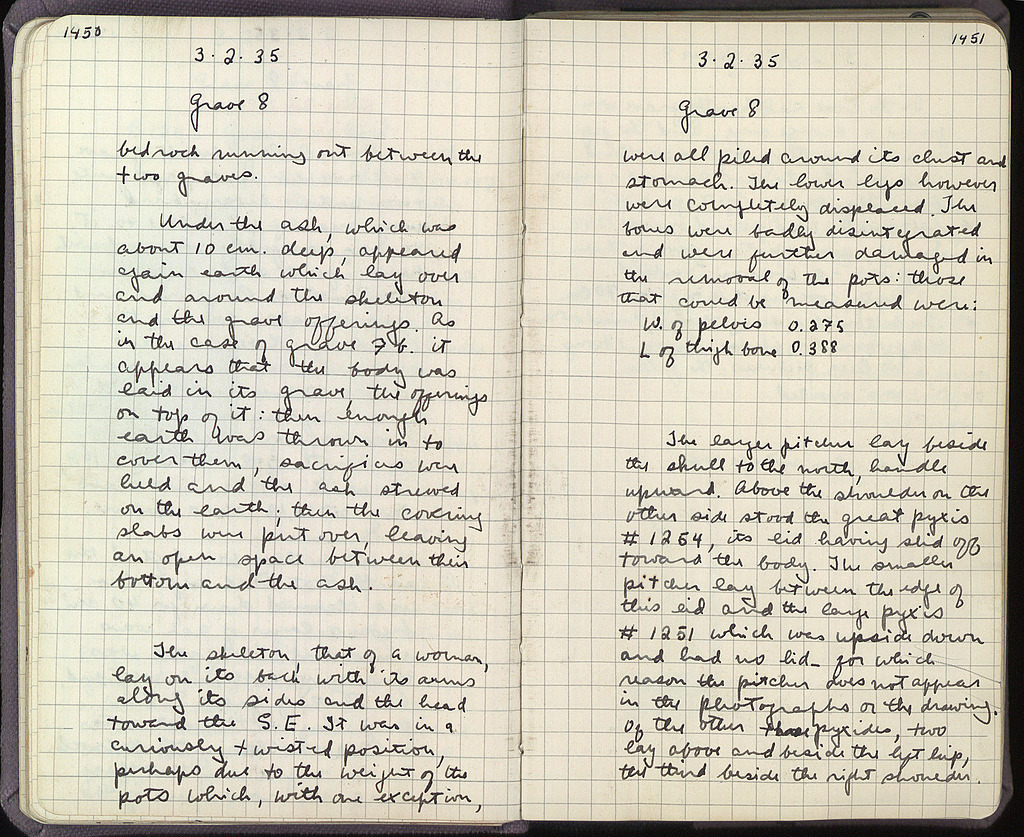 1450
3·2·35
Grave 8
bedrock running out between the
two graves.
Under the ash, which was
about 10 cm. deep, appeared
again earth which lay over
and around the skeleton
and the grave offerings. As
in the case of grave 7 b. it
appears that the body was
laid in its grave, the offerings
on top of it: then enough
earth was thrown in to
cover them, sacrifices were
held and the ash strewed
on the earth; then the covering
slabs were put over, leaving
an open space between their
bottom and the ash.
The skeleton, that of a woman,
lay on its back with its arms
along its sides and the head
toward the S.E. It was in a
curiously twisted position,
perhaps due to the weight of the
pots which, with one exception,
1451
3·2·35
Grave 8
were all piled around its chest and
stomach. The lower legs however
were completely displaced. The
bones were badly disintegrated
and were further damaged in
the removal of the pots: those
that could be measured were:
W. of pelvis 0.275
L of thigh bone 0.388
The larger pitcher lay beside
the skull to the north, handle
upward. Above the shoulder on the
other side stood the great pyxis
# 1254, its lid having slid off
toward the body. The smaller
pitcher lay between the edge of
this lid and the large pyxis
# 1251 which was upside down
and had no lid – for which
reason the pitcher does not appear
in the photographs or the drawing.
Of the other pyxides, two
lay above and beside the left hip,
the third beside the right shoulder.